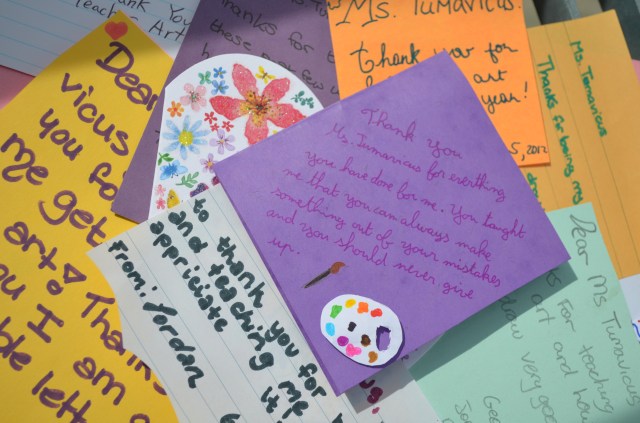 Thank you
Ms. Tumavicus for everthing
you have done for me. You taught
me that you can always make
something out of your mistakes
and you should never give
up.
Ms. Tumavicus.
thank you for
art
year!
5, 2012
Ms. Tumavicus
Thanks for being my
Dear Ms Tumavicus
for teaching
art and how
draw very good
Dear
vicus
you fo
me get
art Tha
u I am
ble lett
to thank you for
and teaching me
appriciate it
From: Jordan
Thank You
Teacher Art
thanks for t
these past few